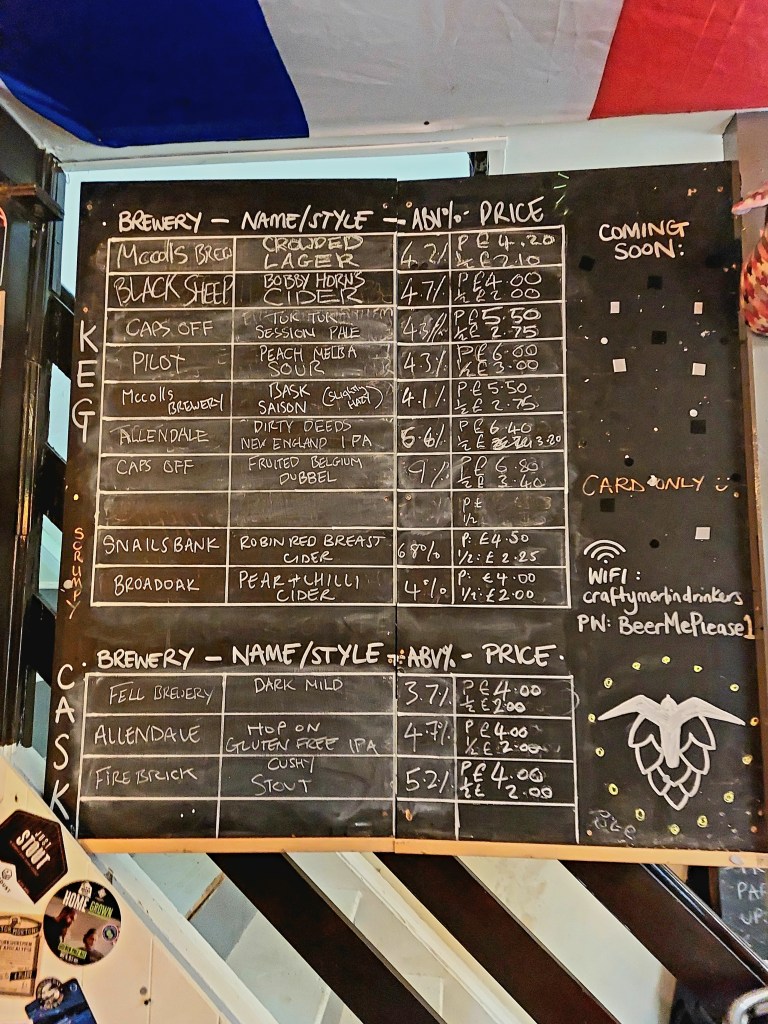 BREWERY - NAME/STYLE - ABV% - PRICE
KEG
McColls Brew CROWDED LAGER 4.2% P £4.20 ½ £2.10
BLACK SHEEP BOBBY HORN'S CIDER 4.7% P £4.00 ½ £2.00
CAPS OFF TUK TUK SESSION PALE P £5.50 ½ £2.75
PILOT PEACH MELBA SOUR 4.3% P £6.00 ½ £3.00
McColls BREWERY BASK SAISON (SLIGHTLY HAZY) 4.1% P £5.50 ½ £2.75
ALLENDALE DIRTY DEEDS NEW ENGLAND IPA 5.6% P £6.40 ½ £3.20
CAPS OFF FRUITED BELGIUM DUBBEL 9% P £6.80 ½ £3.40
P £ 1/2:
SCRUMPY
SNAILSBANK ROBIN RED BREAST CIDER P: £4.50 1/2: £2.25
BROADOAK PEAR + CHILLI CIDER 4% P: £4.00 1/2: £2.00
CASK
BREWERY - NAME/STYLE - ABV% - PRICE.
FELL BREWERY DARK MILD 3.7% P £4.00 ½ £2.00
ALLENDALE HOP ON GLUTEN FREE IPA 4.7% P £4.00 ½ £2.00
FIREBRICK CUSHY STOUT 5.2% P £4.00 ½ £2.00
COMING
SOON:
CARD ONLY
WIFI:
craftymerlindrinkers
PW: BeerMePlease1
JUST
STOUT
HOME GROWN
PA
UP